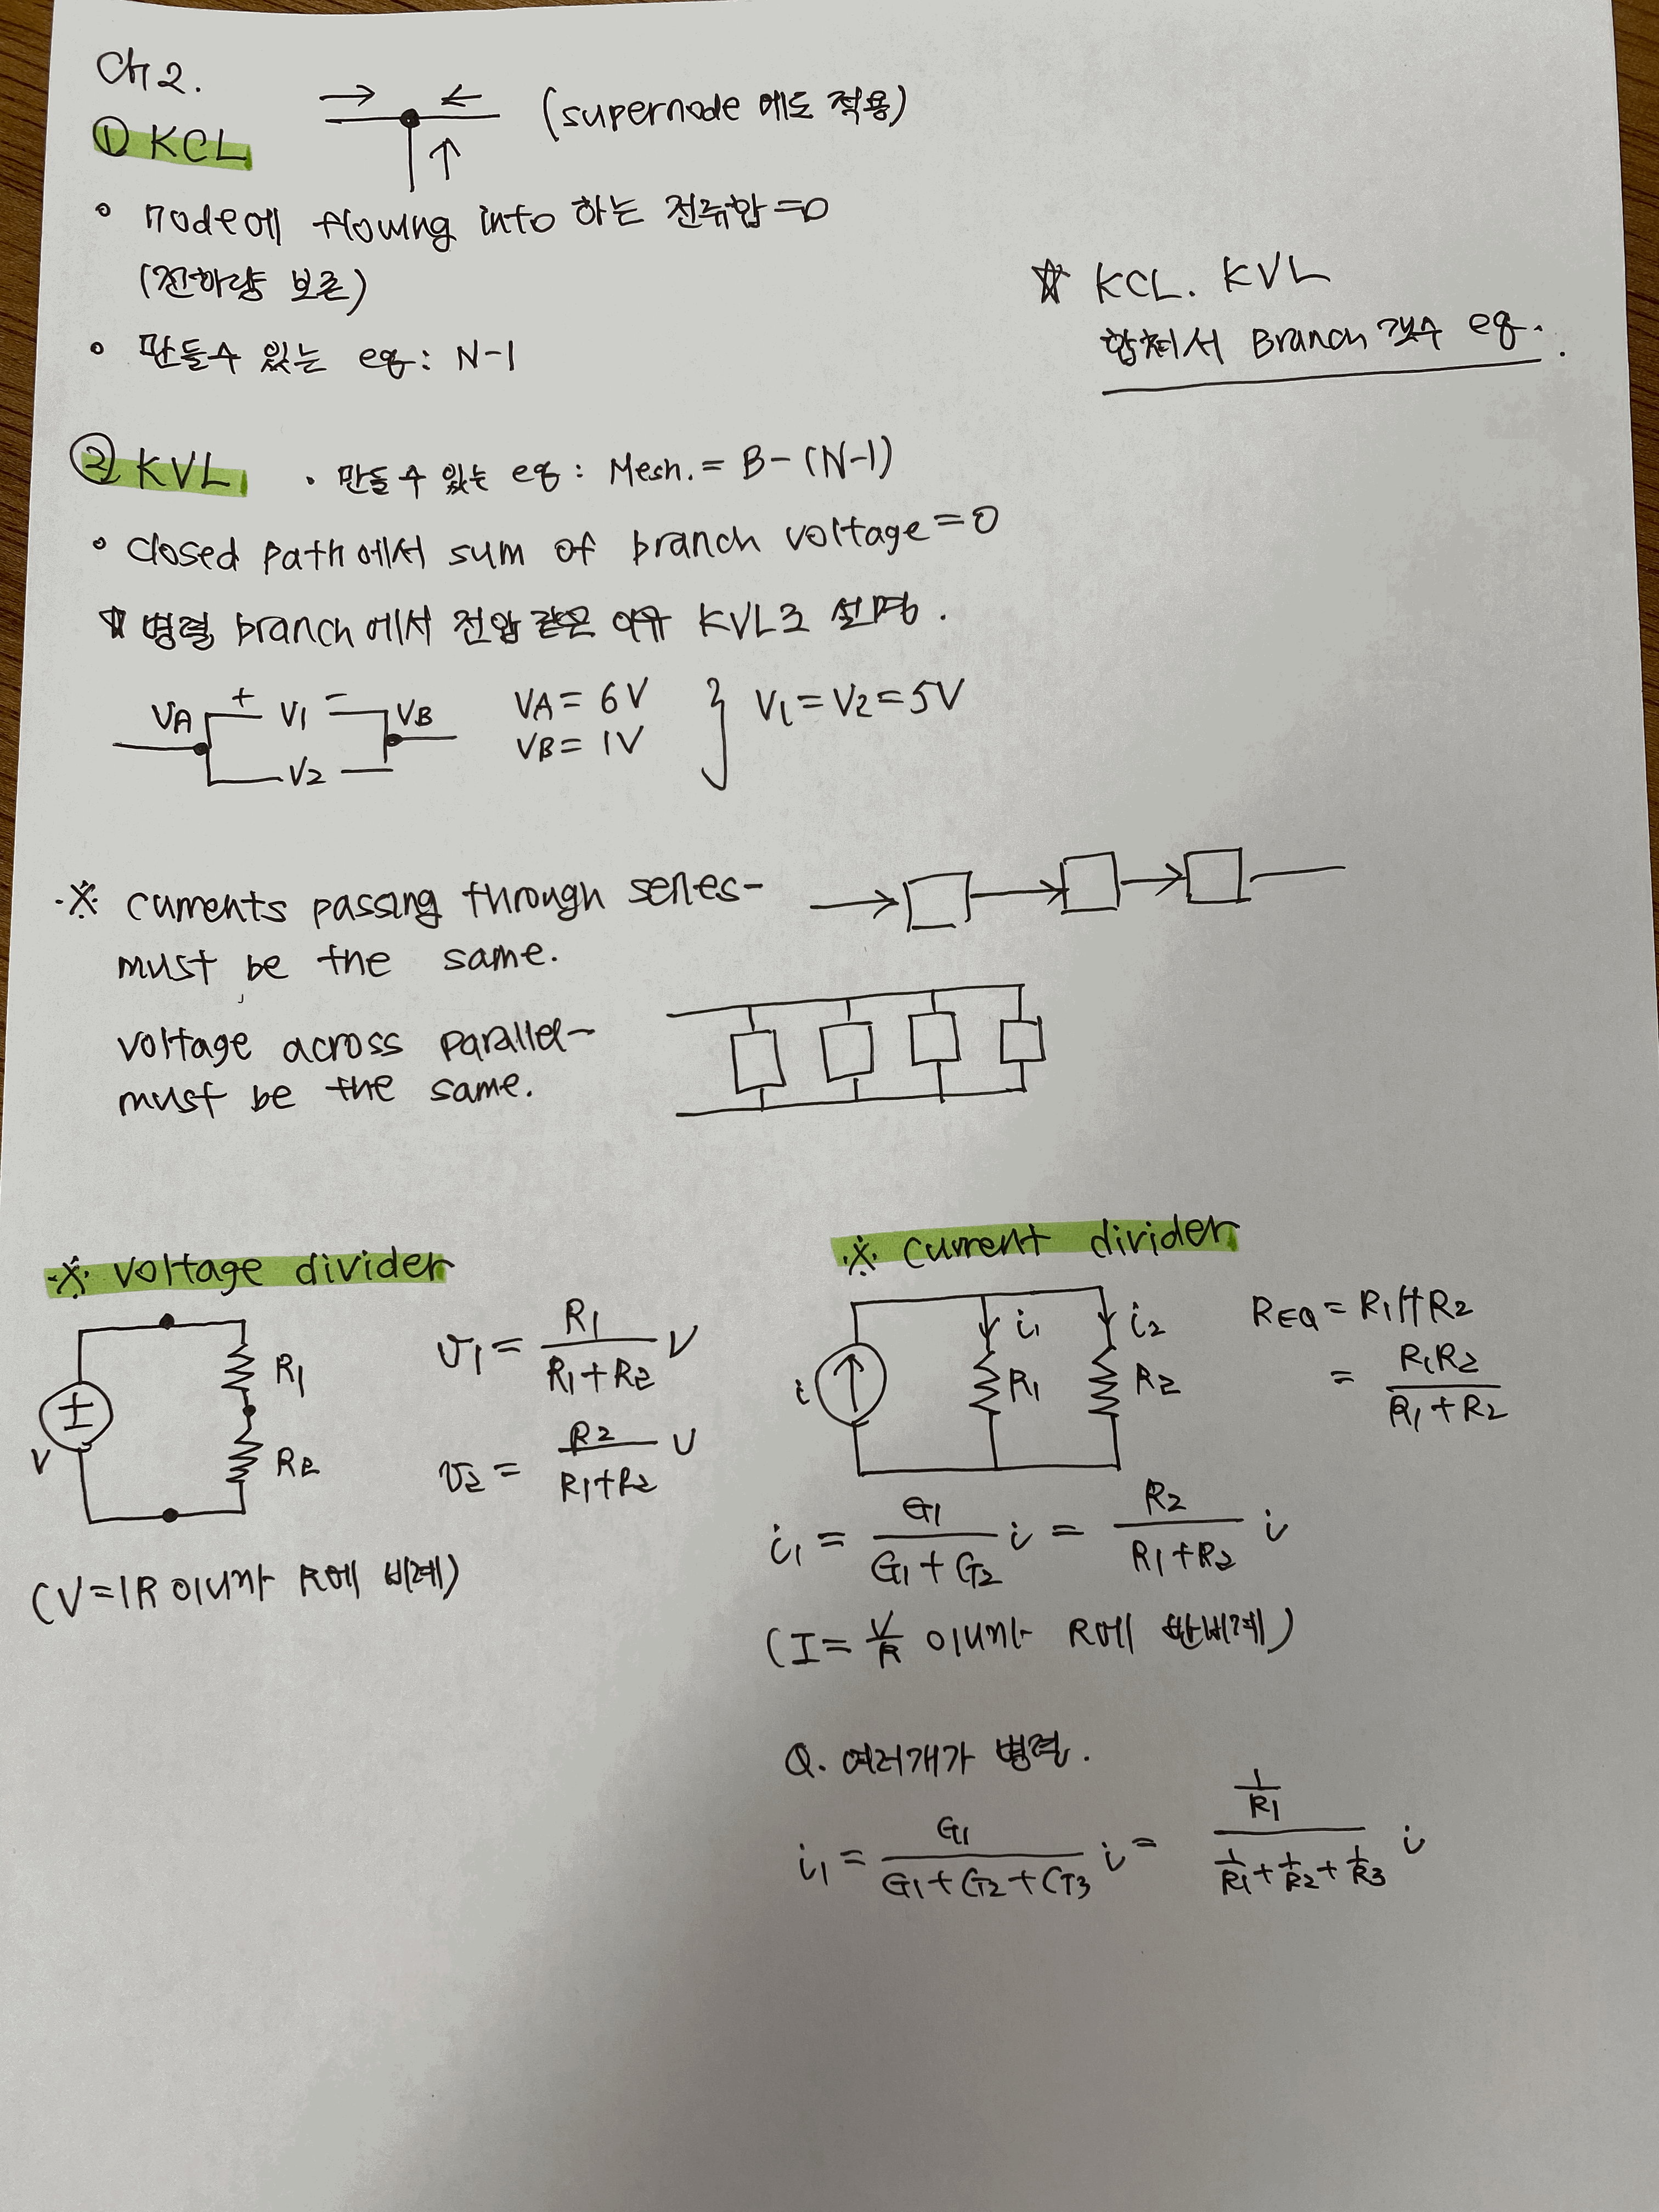 Ch 2.
① KCL
(supernode 에도 적용)
◦ node에 flowing into 하는 전류합=0
(전하량 보존)
◦ 만들수 있는 eq: N-1
☆ KCL. KVL
합쳐서 Branch 갯수 eq.
② KVL
· 만들수 있는 eq: Mesh. = B-(N-1)
◦ closed path에서 sum of branch voltage=0
☆ 병렬 branch에서 전압 같은 이유 KVL로 설명.
VA + V1 - VB
V2
VA = 6V
VB = 1V
} V1 = V2 = 5V
※ currents passing through series-
must be the same.
voltage across parallel-
must be the same.
※ voltage divider
V
R1
R2
v1 = R1/(R1+R2) V
v2 = R2/(R1+R2) V
(V=IR 이니까 R에 비례)
※ current divider
i
i1
i2
R1
R2
REQ = R1//R2
= R1R2/(R1+R2)
i1 = G1/(G1+G2) i = R2/(R1+R2) i
(I = V/R 이니까 R에 반비례)
Q. 여러개가 병렬.
i1 = G1/(G1+G2+G3) i = (1/R1)/(1/R1+1/R2+1/R3) i